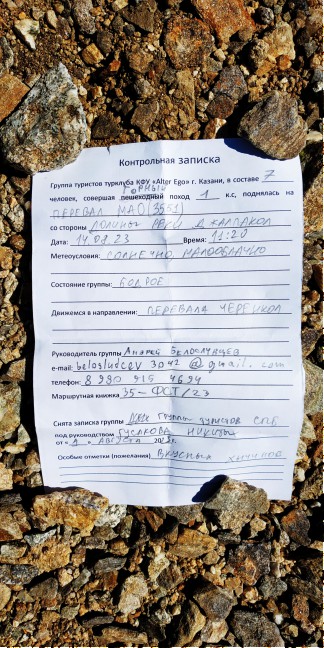 Контрольная записка
Группа туристов турклуба КФУ «Alter Ego» г. Казани, в составе 7
ГОРНЫЙ
человек, совершая пешеходный поход 1 к.с, поднялась на
ПЕРЕВАЛ МАО (3551)
со стороны ДОЛИНЫ РЕКИ
Дата: 14.08.23 Время: 11:20
Метеоусловия: СОЛНЕЧНО, МАЛООБЛАЧНО
Состояние группы: БОДРОЕ
Движемся в направлении: ПЕРЕВАЛА
Руководитель группы Андрей Белослудцев
e-mail: belosludcev3042@gmail.com
телефон: 8 980 915 4694
Маршрутная книжка 35-ФСТ/23
Снята записка группы группы туристов СПб
под руководством ГУСАКОВА НИКИТЫ
от « » АВГУСТА 20 г.
Особые отметки (пожелания) ВКУСНЫХ